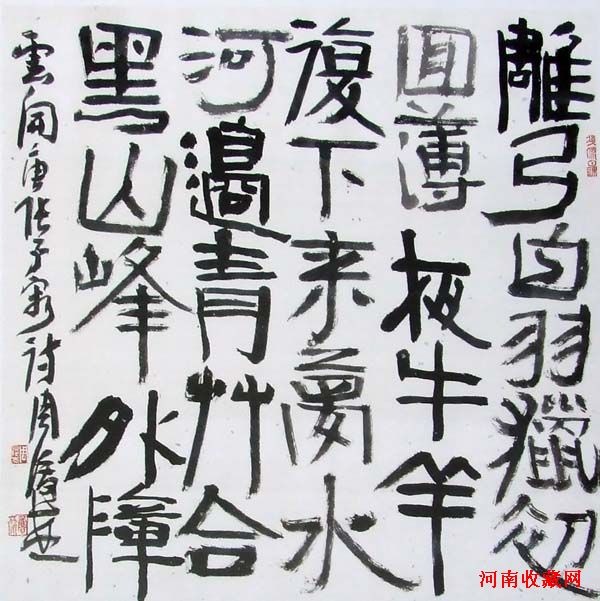 雕弓白羽獵初
回薄夜牛羊
復下來夢水
河邊青艸合
黑山峰外障
雲開唐張子容詩周俊杰
河南收藏网